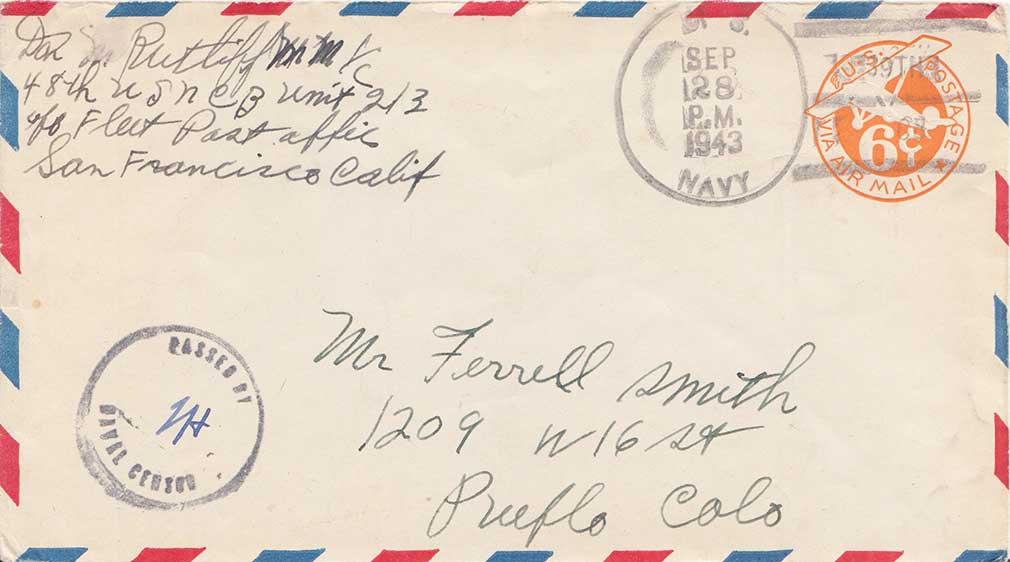 Don M Rutliff MM 1/C
48th U S N C B Unit 213
c/o Fleet Post affic
San Francisco Calif
U. S.
SEP
28
P.M.
1943
NAVY
39TH
U.S. POSTAGE
6¢
VIA AIR MAIL
PASSED BY
NAVAL CENSOR
Mr Ferrell Smith
1209 W 16 St
Pueblo Colo